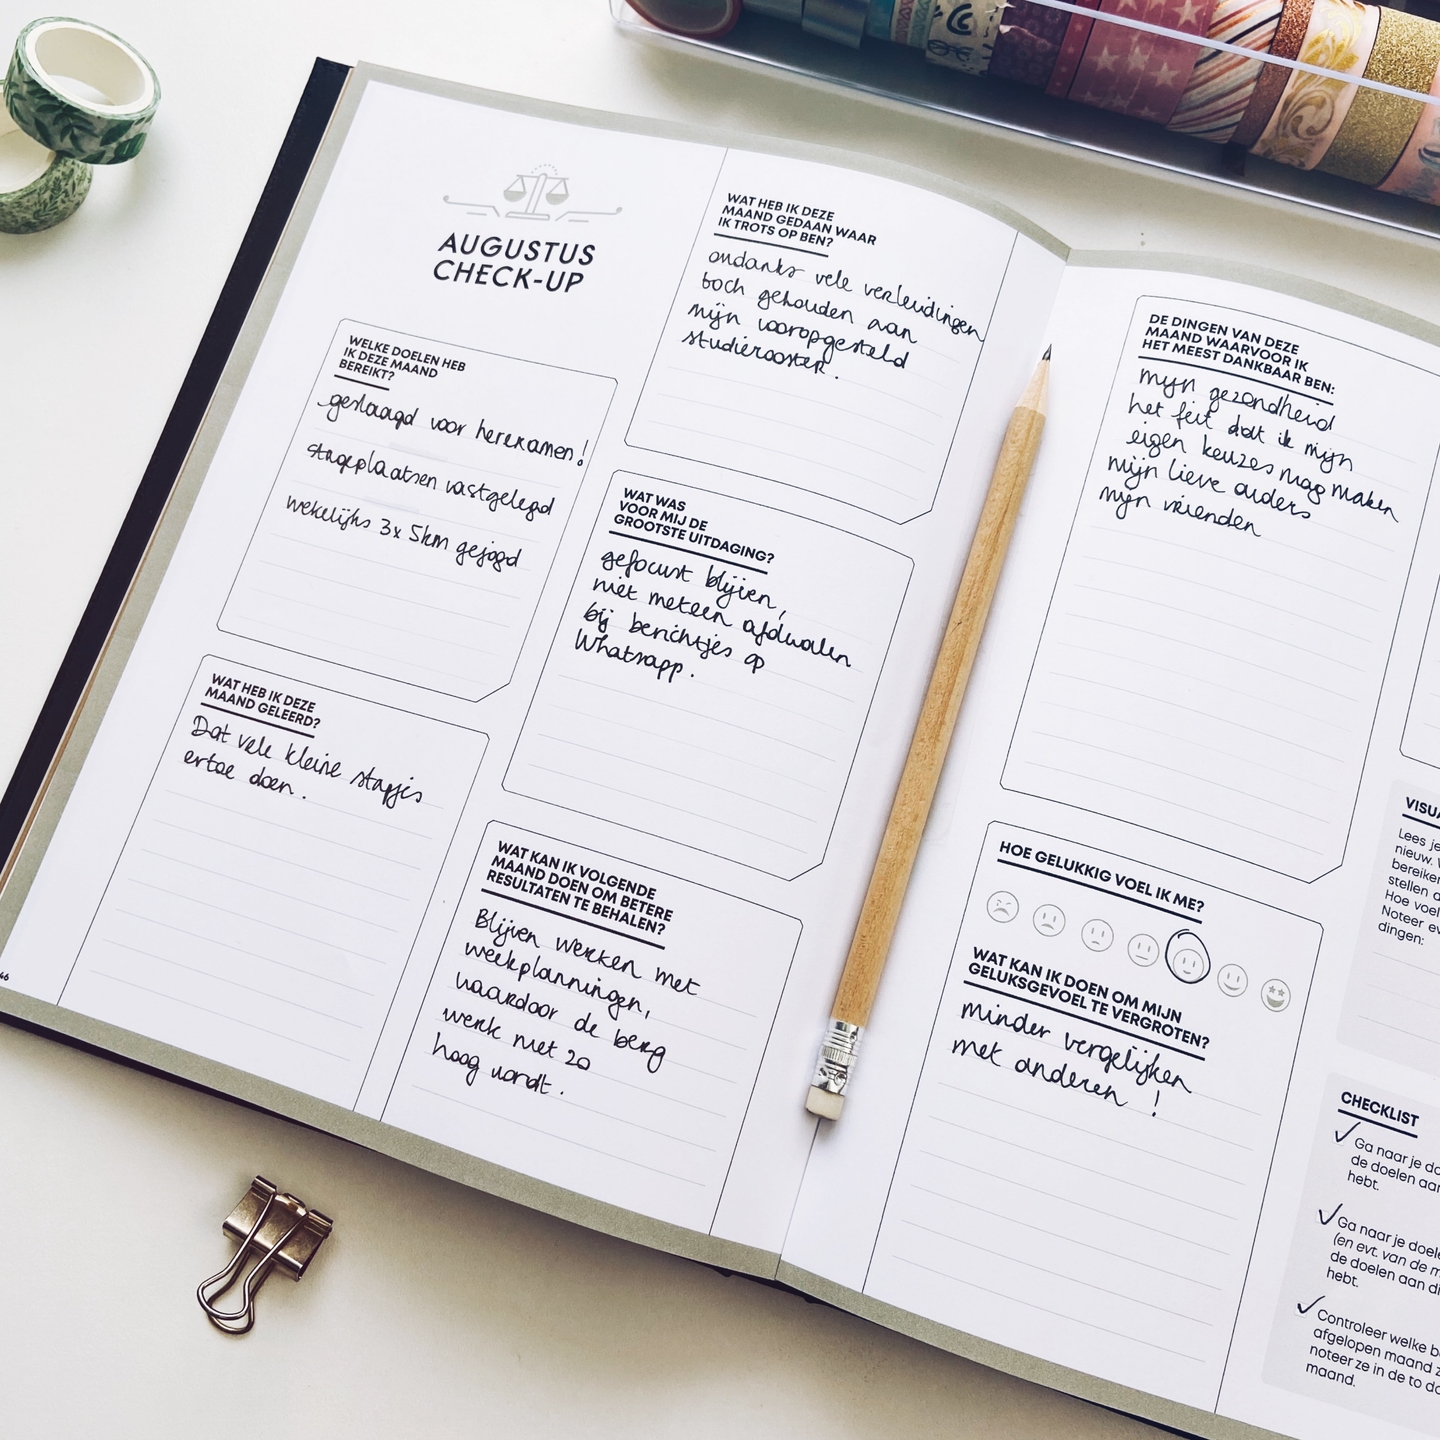 AUGUSTUS
CHECK-UP
WELKE DOELEN HEB
IK DEZE MAAND
BEREIKT?
geslaagd voor herexamen!
stageplaatsen vastgelegd
wekelijks 3x 5km gejogd
WAT HEB IK DEZE
MAAND GELEERD?
Dat vele kleine stapjes
ertoe doen.
46
WAT HEB IK DEZE
MAAND GEDAAN WAAR
IK TROTS OP BEN?
ondanks vele verleidingen
toch gehouden aan
mijn vooropgesteld
studierooster.
WAT WAS
VOOR MIJ DE
GROOTSTE UITDAGING?
gefocust blijven,
niet meteen afdwalen
bij berichtjes op
Whatsapp.
WAT KAN IK VOLGENDE
MAAND DOEN OM BETERE
RESULTATEN TE BEHALEN?
Blijven werken met
weekplanningen,
waardoor de berg
werk niet zo
hoog wordt.
DE DINGEN VAN DEZE
MAAND WAARVOOR IK
HET MEEST DANKBAAR BEN:
mijn gezondheid
het feit dat ik mijn
eigen keuzes mag maken
mijn lieve ouders
mijn vrienden
HOE GELUKKIG VOEL IK ME?
WAT KAN IK DOEN OM MIJN
GELUKSGEVOEL TE VERGROTEN?
minder vergelijken
met anderen !
VISUA
Lees je
nieuw. V
bereiken
stellen d
Hoe voel
Noteer ev
dingen:
CHECKLIST
Ga naar je do
de doelen aan
hebt.
Ga naar je doele
(en evt. van de m
de doelen aan di
hebt.
Controleer welke b
afgelopen maand z
noteer ze in de to do
maand.